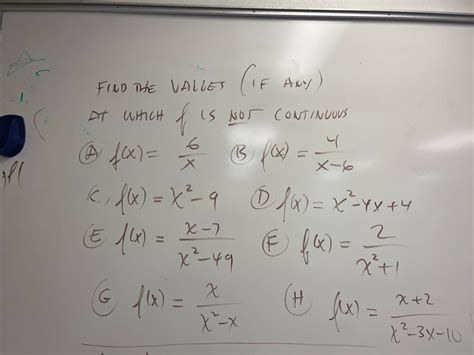 FIND THE VALUES (IF ANY)
AT WHICH f IS NOT CONTINUOUS
Ⓐ f(x) = 6/x Ⓑ f(x) = 4/(x-6)
C, f(x) = x²-9 Ⓓ f(x) = x²-4x+4
Ⓔ f(x) = (x-7)/(x²-49) Ⓕ f(x) = 2/(x²+1)
Ⓖ f(x) = x/(x²-x) Ⓗ f(x) = (x+2)/(x²-3x-10)